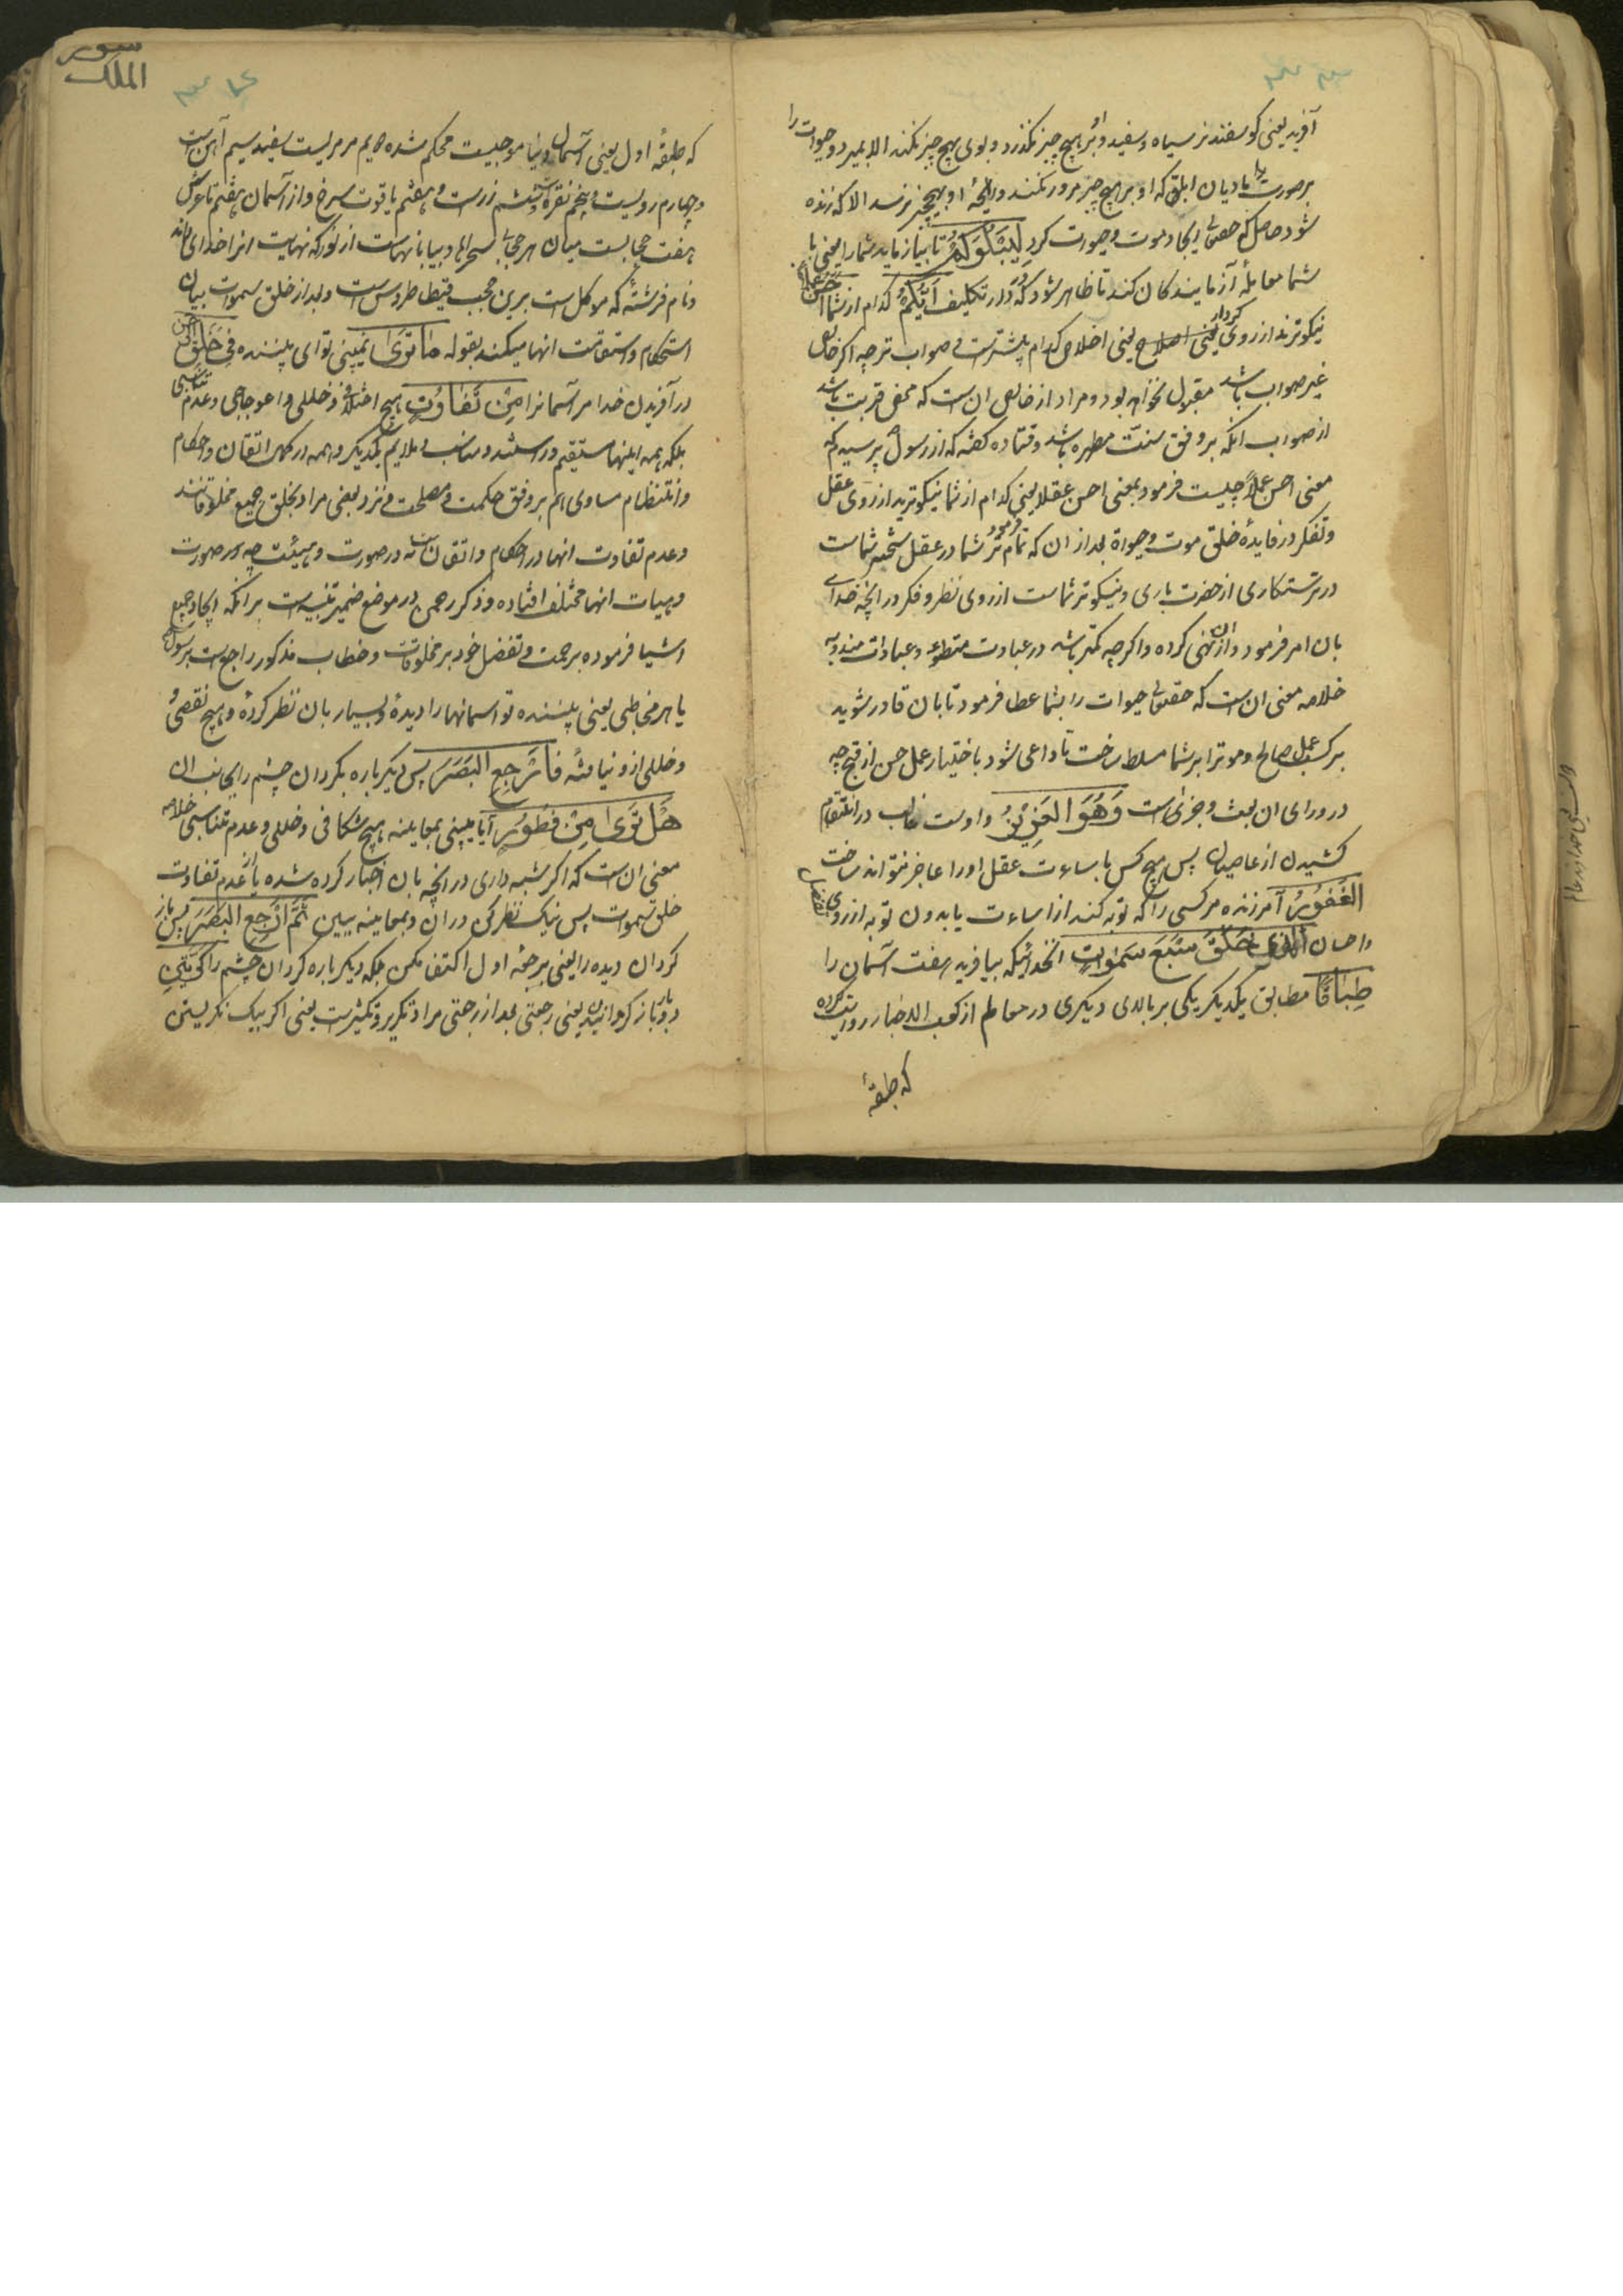 آفرید یعنی کوسفند نر سیاه و سفید و او بر هیچ چیز نکذرد و بوی هیچ چیز نکند الا بمیرد و حیوات را
بر صورت مادیان ابلق که او بر هیچ چیز مرور نکند و رایحهٔ او بهیچ چیز نرسد الا که زنده
شود حاصل که حقتعالی ایجاد موت و حیوت کرد لِیَبْلُوَکُمْ تا بیازماید شما را یعنی با
شما معاملهٔ آزمایندکان کند تا ظاهر شود که در دار تکلیف اَیُّکُمْ کدام از شما اَحْسَنُ عَمَلاً
نیکوترند از روی کردار یعنی اخلاص کدام بیشترست و صواب تر چه اکر خالص
غیر صواب باشد مقبول نخواهد بود و مراد از خالص ان است که محض قربت باشد
از صواب انکه بر وفق سنت مطهره باشد و قتاده کفته که از رسول پرسیدم که
معنی احسن عملاً چیست فرمود بمعنی احسن عقلا یعنی کدام از شما نیکوترید از روی عقل
و تفکر در فایدهٔ خلق موت و حیواة بعد از ان فرمود که تمام تر شما در عقل سخت تر شماست
در ترستکاری از حضرت باری و نیکوتر شماست از روی نظر و فکر در انچه خدای
بان امر فرمود و از ان نهی کرده و اکرچه کمتر باشد در عبادت متطوعه و عبادات مندوبه
خلاصه معنی ان است که حقتعالی حیوات را بشما عطا فرمود تا بان قادر شوید
بر کسب عمل صالح و موترا بر شما مسلط ساخت تا داعی شود باختیار عمل حسن از قبیح چه
در ورای ان بعث و جزائست وَهُوَ الْعَزِیْزُ و اوست غالب در انتقام
کشیدن از عاصیان پس هیچ کس باساءت عقل او را عاجز نتواند ساخت
الْغَفُوْرُ آمرزنده مر کسی را که توبه کند از اساءت یا بدون توبه از روی تفضل
و احسان اَلَّذِی خَلَقَ سَبْعَ سَمٰوَاتٍ انخدائیکه بیافرید هفت آسمان را
طِبَاقًا مطابق یکدیکر یکی بر بالای دیکری در معالم از کعب الاخبار روایت کرده
که طبقهٔ
سورة
الملک
که طبقهٔ اول یعنی آسمان دنیا موجیست محکم شده دویم مرمریست سفید سیم آهن است
و چهارم رویست و پنجم نقره است و ششم زرست و هفتم یاقوت سرخ و از آسمان هفتم تا عرش
هفت حجابست میان هر حجابی صحراها و بیابانهاست از نور که نهایت انرا خدای داند
و نام فرشتهٔ که موکل است برین حجب قیطاطروس است و بعد از خلق سموات بیان
استحکام و استقامت انها میکند بقوله مَا تَرَی نمیبینی تو ای بیننده فِی خَلْقِ الرَّحْمٰنِ
در آفریدن خدا مر آسمانرا مِنْ تَفَاوُتٍ هیچ اختلاف و خللی و اعوجاجی و عدم تناسبی
بلکه همه اینها مستقیم و راستند و مناسب و ملایم یکدیکر و همه در کمال اتقان و احکام
و انتظام مساوی هم بر وفق حکمت و مصلحت و نزد بعضی مراد بخلق جمیع مخلوقاتند
و عدم تفاوت انها در احکام و اتقان است نه در صورت و هیئت چه در صورت
و هیات انها مختلف افتاده و ذکر رحمن در موضع ضمیر تنبیه است بر انکه ایجاد جمیع
اشیا فرموده برحمت و تفضل خود بر مخلوقات و خطاب مذکور راجع است برسول
یا هر مخاطبی یعنی بیننده تو اسمانها را دیدهٔ و بسیار بان نظر کردهٔ و هیچ نقصی
و خللی از و نیافتهٔ فَارْجِعِ الْبَصَرَ پس دیکر باره بکردان چشم را بجانب ان
هَلْ تَرَی مِنْ فُطُوْرٍ آیا میبینی بمعاینه هیچ شکافی و خللی و عدم تناسبی خلاصه
معنی ان است که اکر شبهه داری در انچه بان اخبار کرده شده یا از عدم تفاوت
خلق سموات پس نیک نظر کن در ان و بمعاینه ببین ثُمَّ ارْجِعِ الْبَصَرَ پس باز
کردان دیده را یعنی برجعه اول اکتفا مکن بلکه دیکر باره کردان چشم را کَرَّتَیْنِ
دو بار باز کردانیدن یعنی رجعتی بعد از رجعتی مراد تکریر و تکثیرست یعنی اکر بیک نکریستن